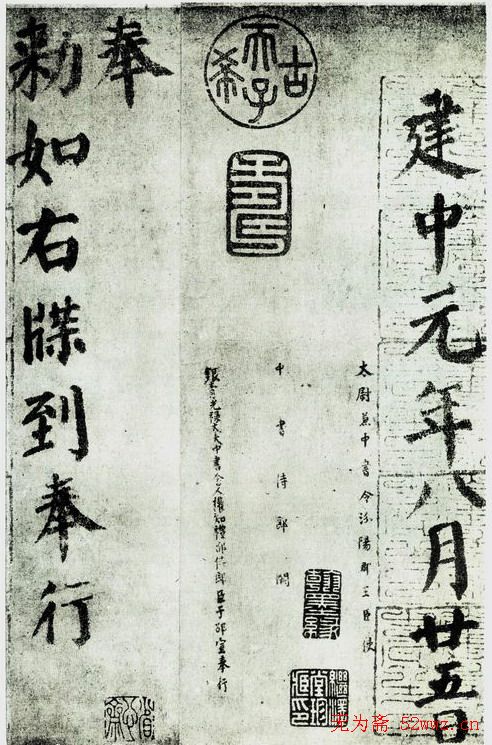 建中元年八月廿五日
太尉兼中書令汾陽郡王臣使
中書侍郎闕
銀青光祿大夫中書舍人權知禮部侍郎臣于邵宣奉行
奉
勅如右牒到奉行
古希天子
无为斋 52wwz.cn